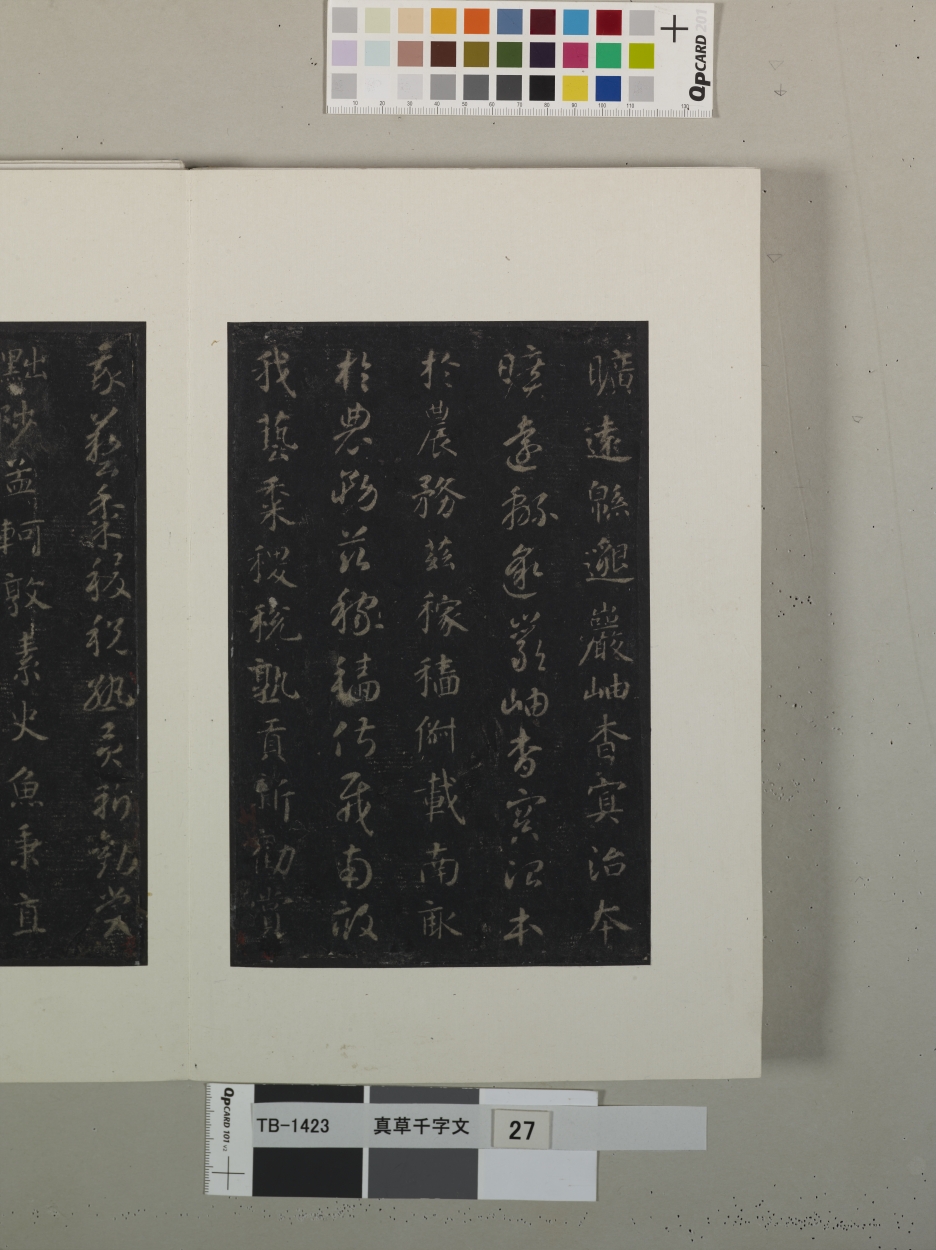 曠遠緜邈巖岫杳冥治本
曠遠緜邈巖岫杳冥治本
於農務茲稼穡俶載南畝
於農務茲稼穡俶載南畝
我藝黍稷稅熟貢新勸賞
我藝黍稷稅熟貢新勸賞
黜陟孟軻敦素史魚秉直
QPCARD 201
10 20 30 40 50 60 70 80 90 100 110 130
QPCARD 101 v2
TB-1423 真草千字文 27